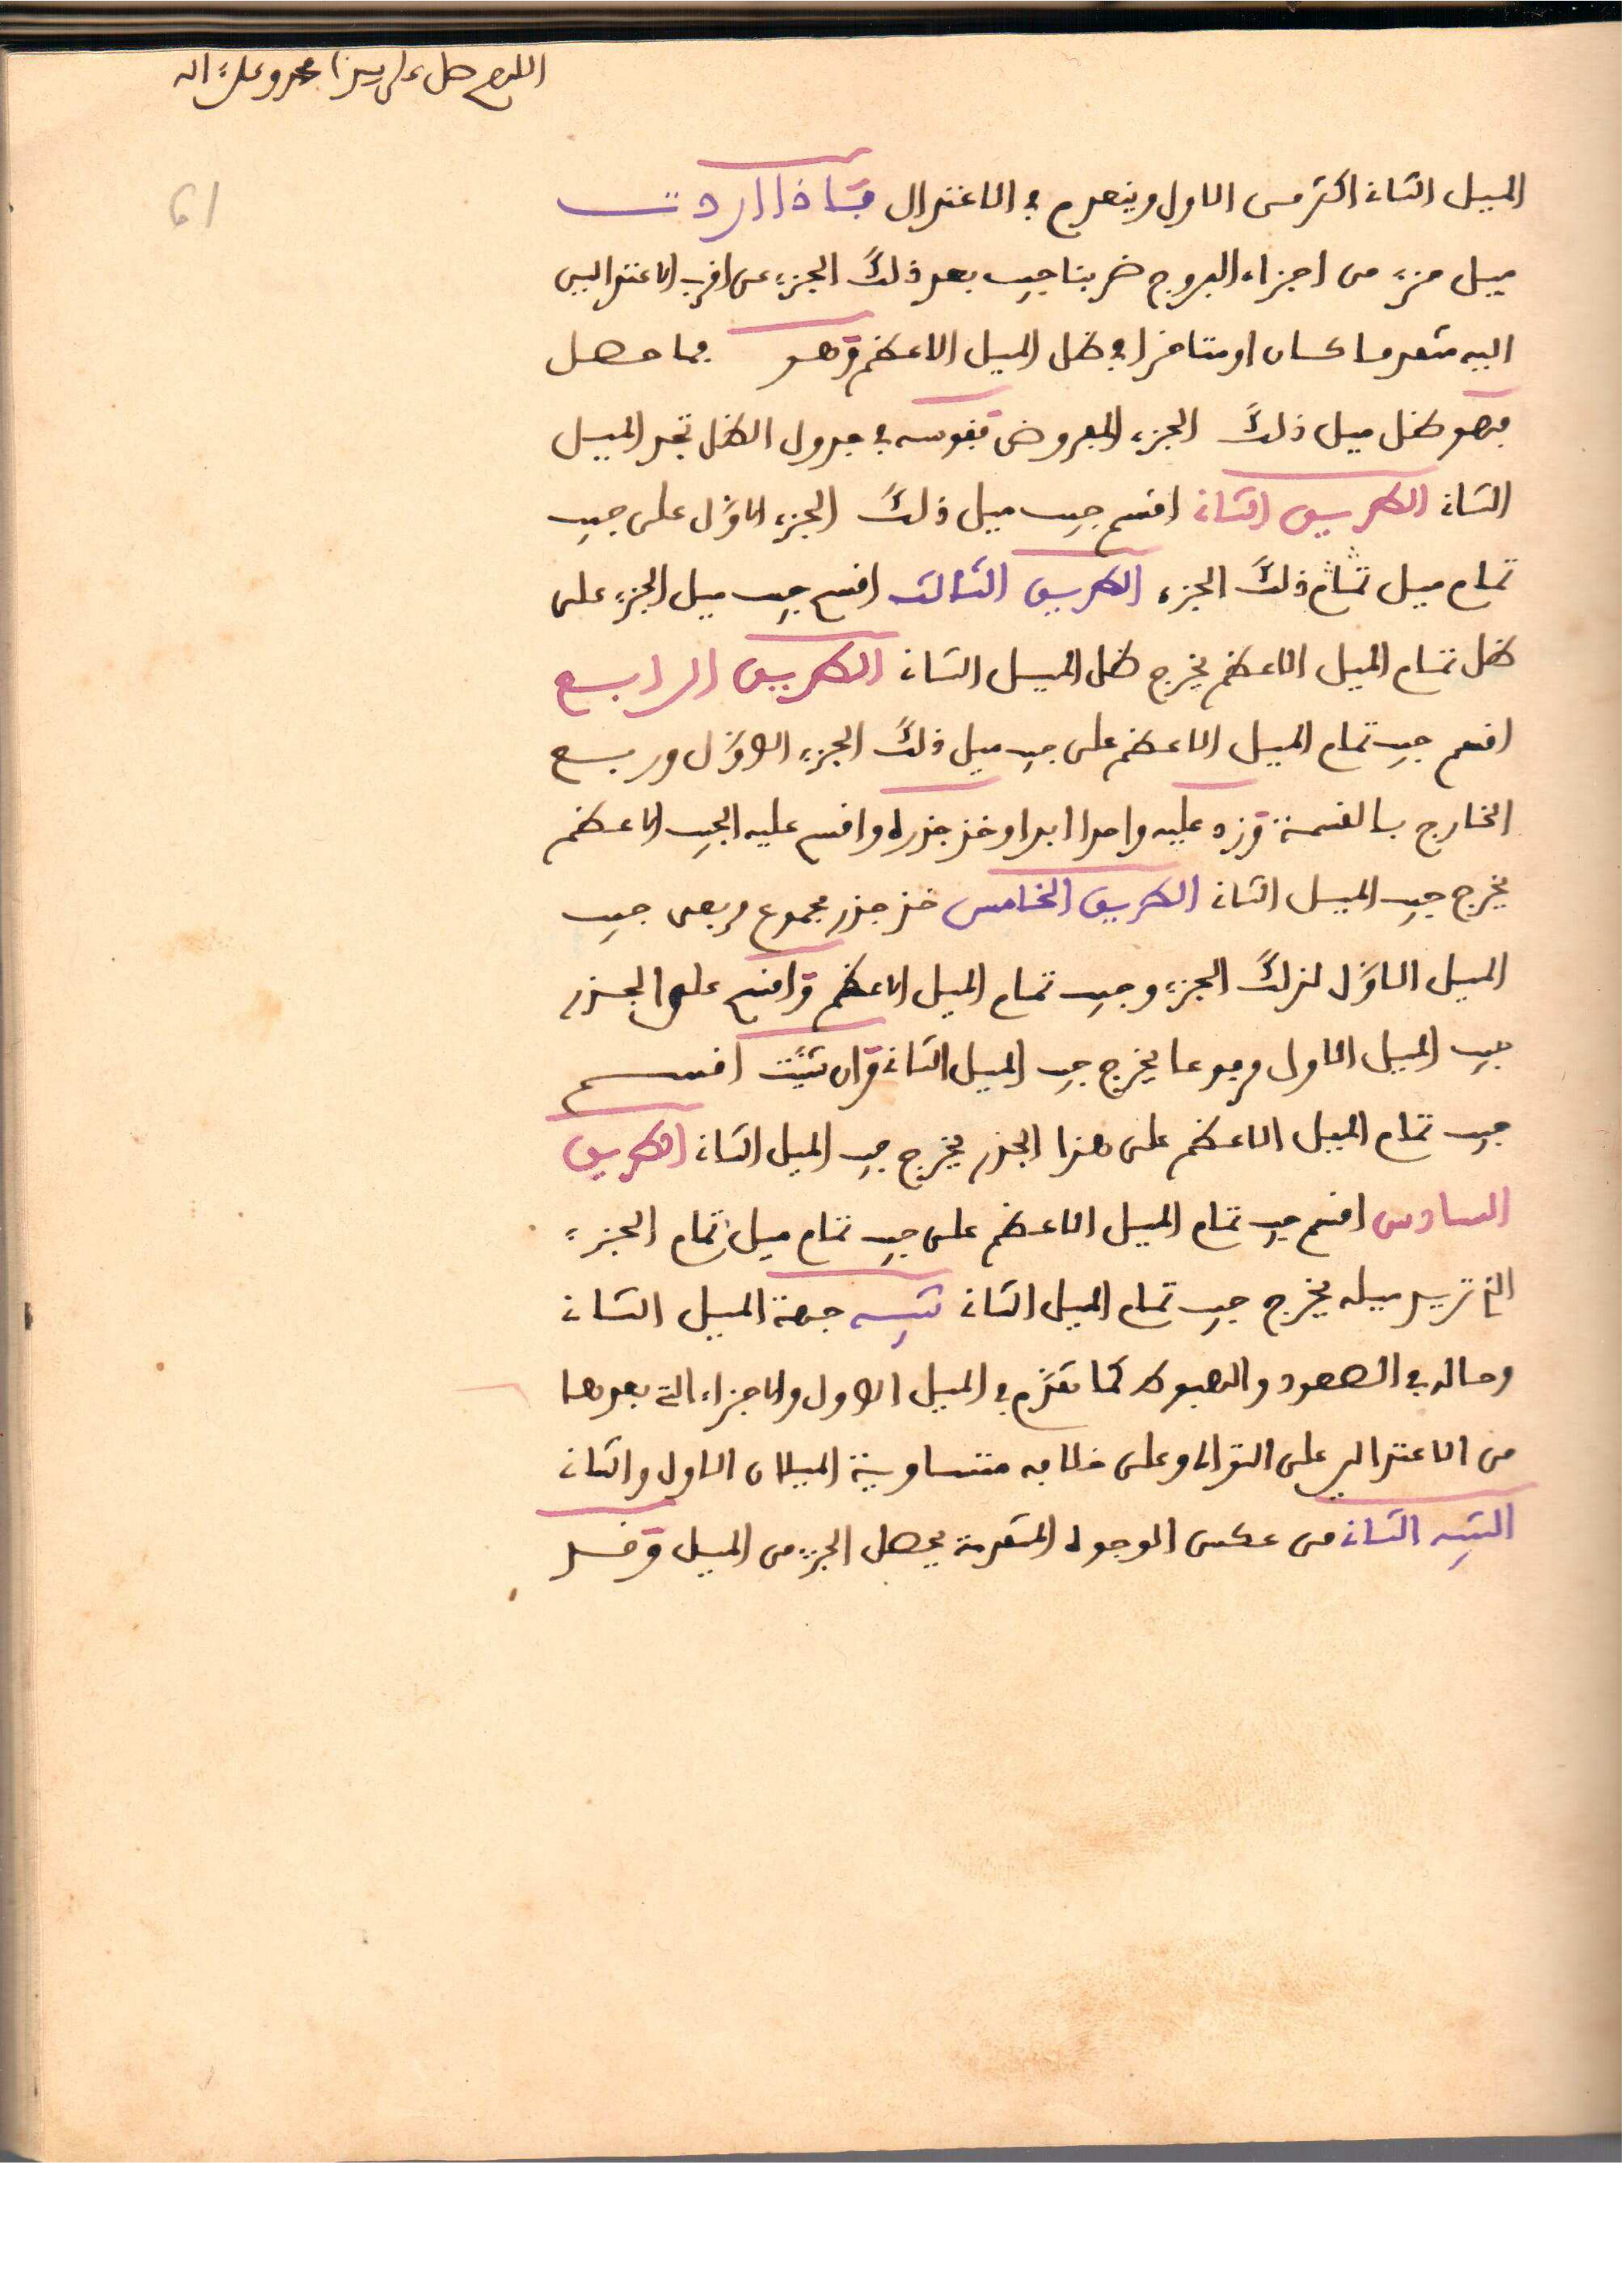 اللهم صل على سيدنا محمد وعلى اله
61
الميل الثانى اكثر من الاول وينعدم في الاعتدال فاذا اردت
ميل جزء من اجزاء البروج ضربنا جيب بعد ذلك الجزء عن اقرب الاعتدالين
اليه متقدما كان او متاخرا في ظل الميل الاعظم وهو فما حصل
فهو ظل ميل ذلك الجزء المفروض فقوسه في جدول الظل تجد الميل
الثانى الطريق الثانى اقسم جيب ميل ذلك الجزء الاوّل على جيب
تمام ميل تمام ذلك الجزء الطريق الثالث اقسم جيب ميل الجزء على
ظل تمام الميل الاعظم يخرج ظل الميل الثانى الطريق الرابع
اقسم جيب تمام الميل الاعظم على جيب ميل ذلك الجزء الاوّل وربع
الخارج بالقسمة وزد عليه واحدا ابدا وخذ جذره واقسم عليه الجيب الاعظم
يخرج جيب الميل الثانى الطريق الخامس خذ جذر مجموع مربعى جيب
الميل الاوّل لذلك الجزء وجيب تمام الميل الاعظم واقسم على الجذر
جيب الميل الاول مرفوعا يخرج جيب الميل الثانى وان شئت اقسم
جيب تمام الميل الاعظم على هذا الجذر يخرج جيب الميل الثانى الطريق
السادس اقسم جيب تمام الميل الاعظم على جيب تمام ميل تمام الجزء
الذي تريد ميله يخرج جيب تمام الميل الثانى تنبيه جهة الميل الثانى
وحاله في الصعود والهبوط كما تقدّم في الميل الاول والاجزاء التي بعدها
من الاعتدالين على التوالى وعلى خلافه متساوية الميلان الاول والثانى
التنبيه الثانى من عكس الوجوه المتقدمة يحصل الجزء من الميل وقد